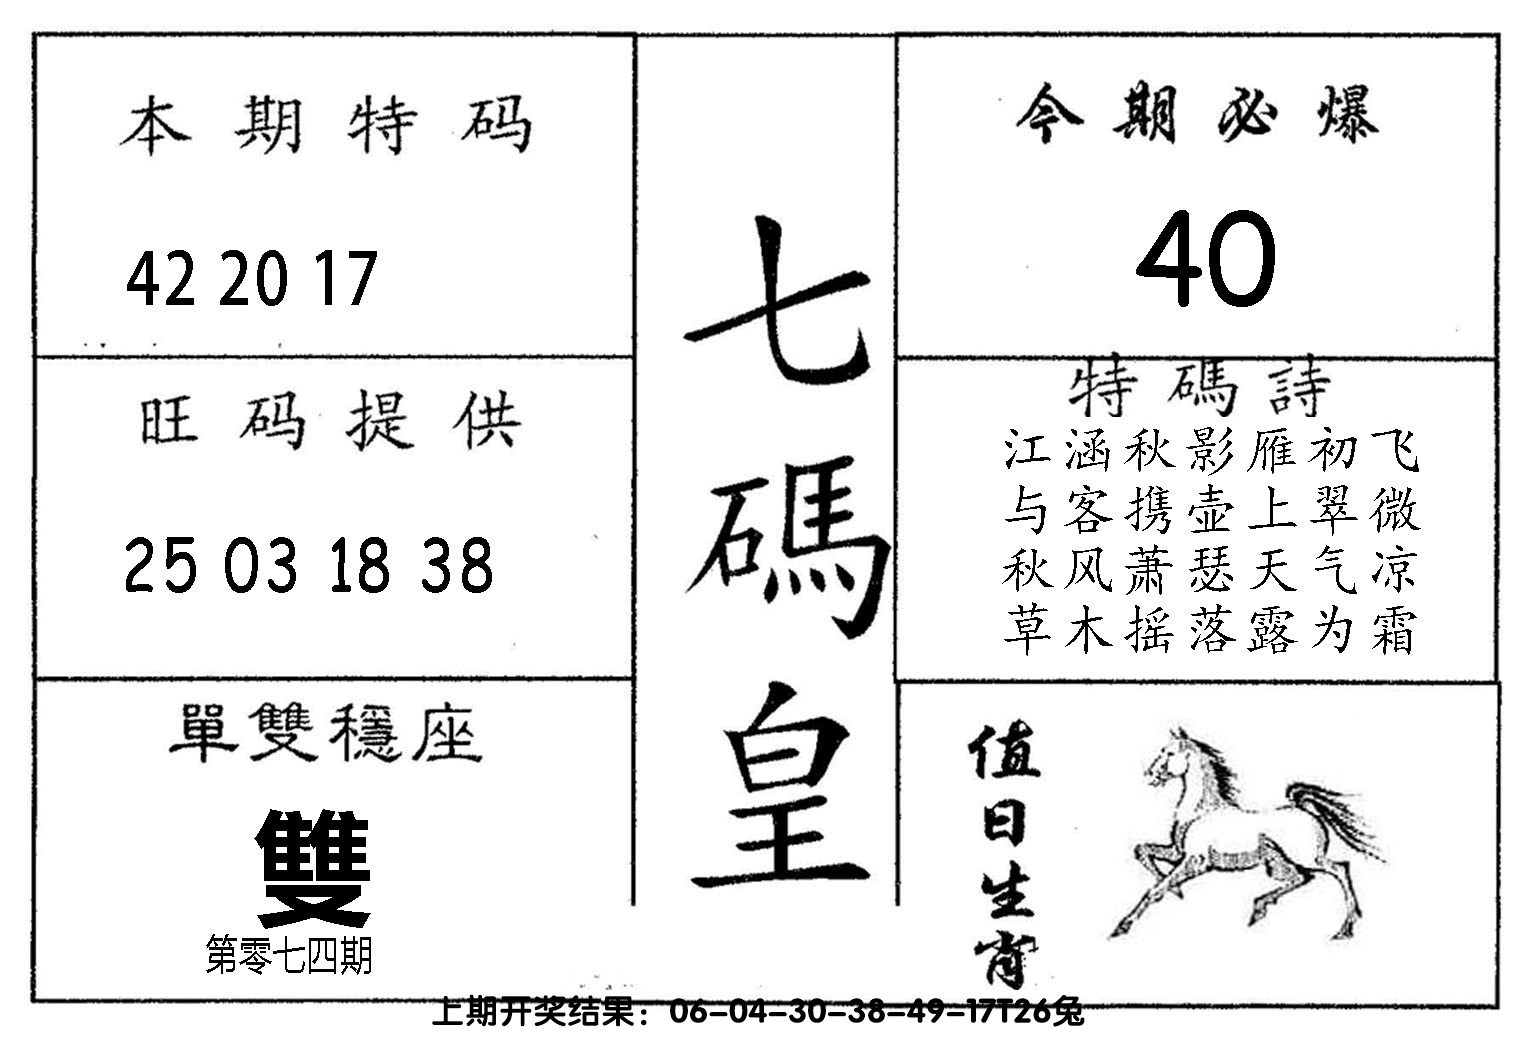 本期特码
42 20 17
旺码提供
25 03 18 38
單雙穩座
雙
第零七四期
七碼皇
今期必爆
40
特碼詩
江涵秋影雁初飞
与客携壶上翠微
秋风萧瑟天气凉
草木摇落露为霜
值日生肖
上期开奖结果：06-04-30-38-49-17T26兔